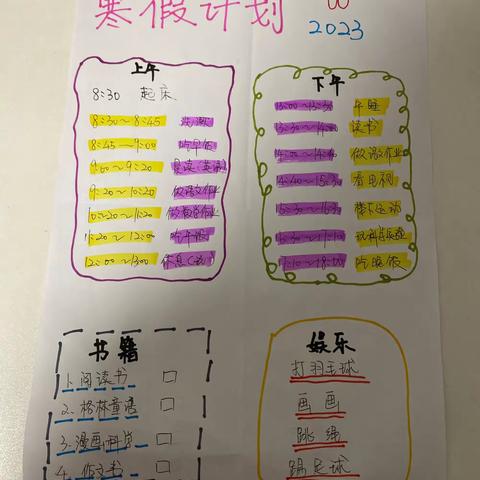 寒假计划
2023
上午
8:30 起床
8:30～8:45 洗漱
8:45～9:00 吃早饭
9:00～9:20 晨读(英语)
9:20～10:20 做语文作业
10:20～11:20 做数学作业
11:20～12:00 吃午饭
12:00～13:00 休息
下午
13:00～13:30 午睡
13:30～14:00 读书
14:00～14:40 做语文作业
14:40～15:30 看电视
15:30～16:30 运动
16:30～17:10
17:10～18:00 吃晚饭
书籍
1.阅读书
2.格林童话
3.漫画科学
4.作文书
娱乐
打羽毛球
画画
跳绳
踢足球